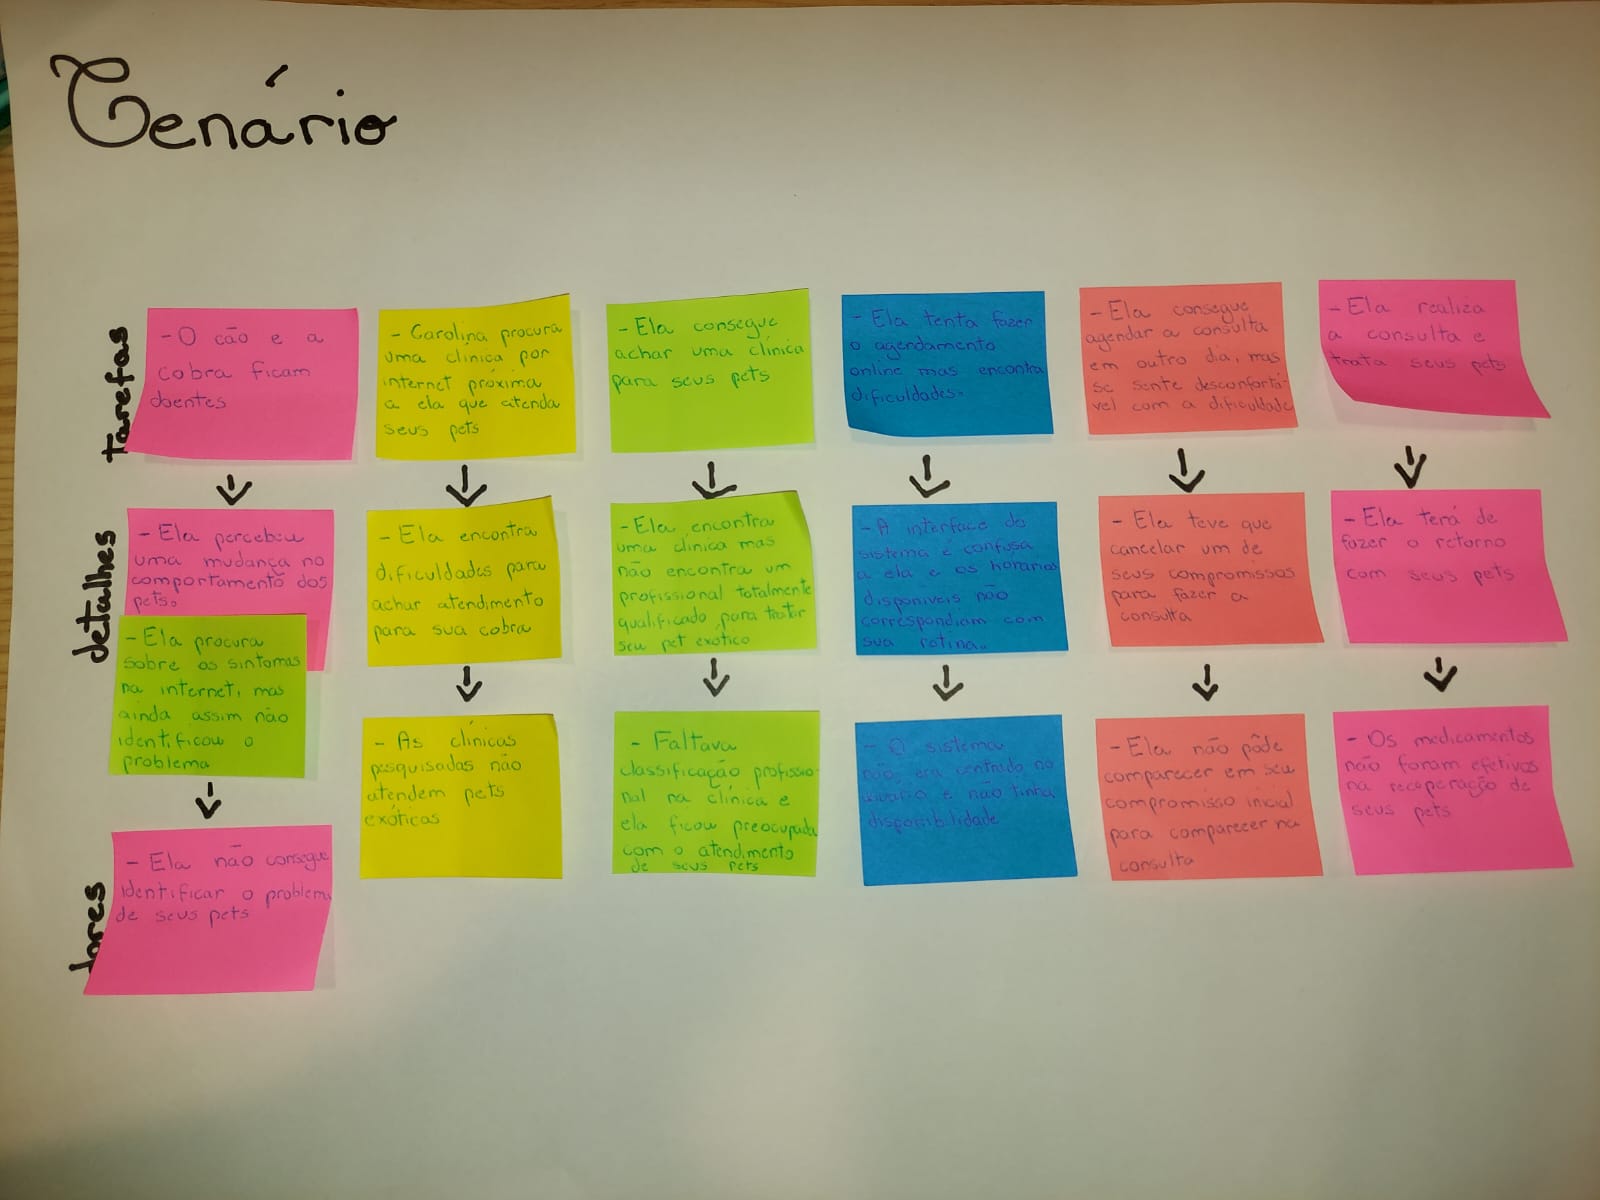 Cenário
tarefas
- O cão e a
cobra ficam
doentes
- Carolina procura
uma clínica por
internet próxima
a ela que atenda
seus pets
- Ela consegue
achar uma clínica
para seus pets
- Ela tenta fazer
o agendamento
online mas encontra
dificuldades.
- Ela consegue
agendar a consulta
em outro dia, mas
se sente desconfortá-
vel com a dificuldade
- Ela realiza
a consulta e
trata seus pets
detalhes
- Ela percebeu
uma mudança no
comportamento dos
pets.
- Ela procura
sobre os sintomas
na internet, mas
ainda assim não
identificou o
problema
- Ela encontra
dificuldades para
achar atendimento
para sua cobra
- Ela encontra
uma clínica mas
não encontra um
profissional totalmente
qualificado para tratar
seu pet exótico
- A interface do
sistema é confusa
a ela e os horários
disponíveis não
correspondiam com
sua rotina.
- Ela teve que
cancelar um de
seus compromissos
para fazer a
consulta
- Ela terá de
fazer o retorno
com seus pets
dores
- Ela não consegue
identificar o problema
de seus pets
- As clínicas
pesquisadas não
atendem pets
exóticas
- Faltava
classificação profissio-
nal na clínica e
ela ficou preocupada
com o atendimento
de seus pets
- O sistema
não era centrado no
usuário e não tinha
disponibilidade
- Ela não pôde
comparecer em seu
compromisso inicial
para comparecer na
consulta
- Os medicamentos
não foram efetivos
na recuperação de
seus pets